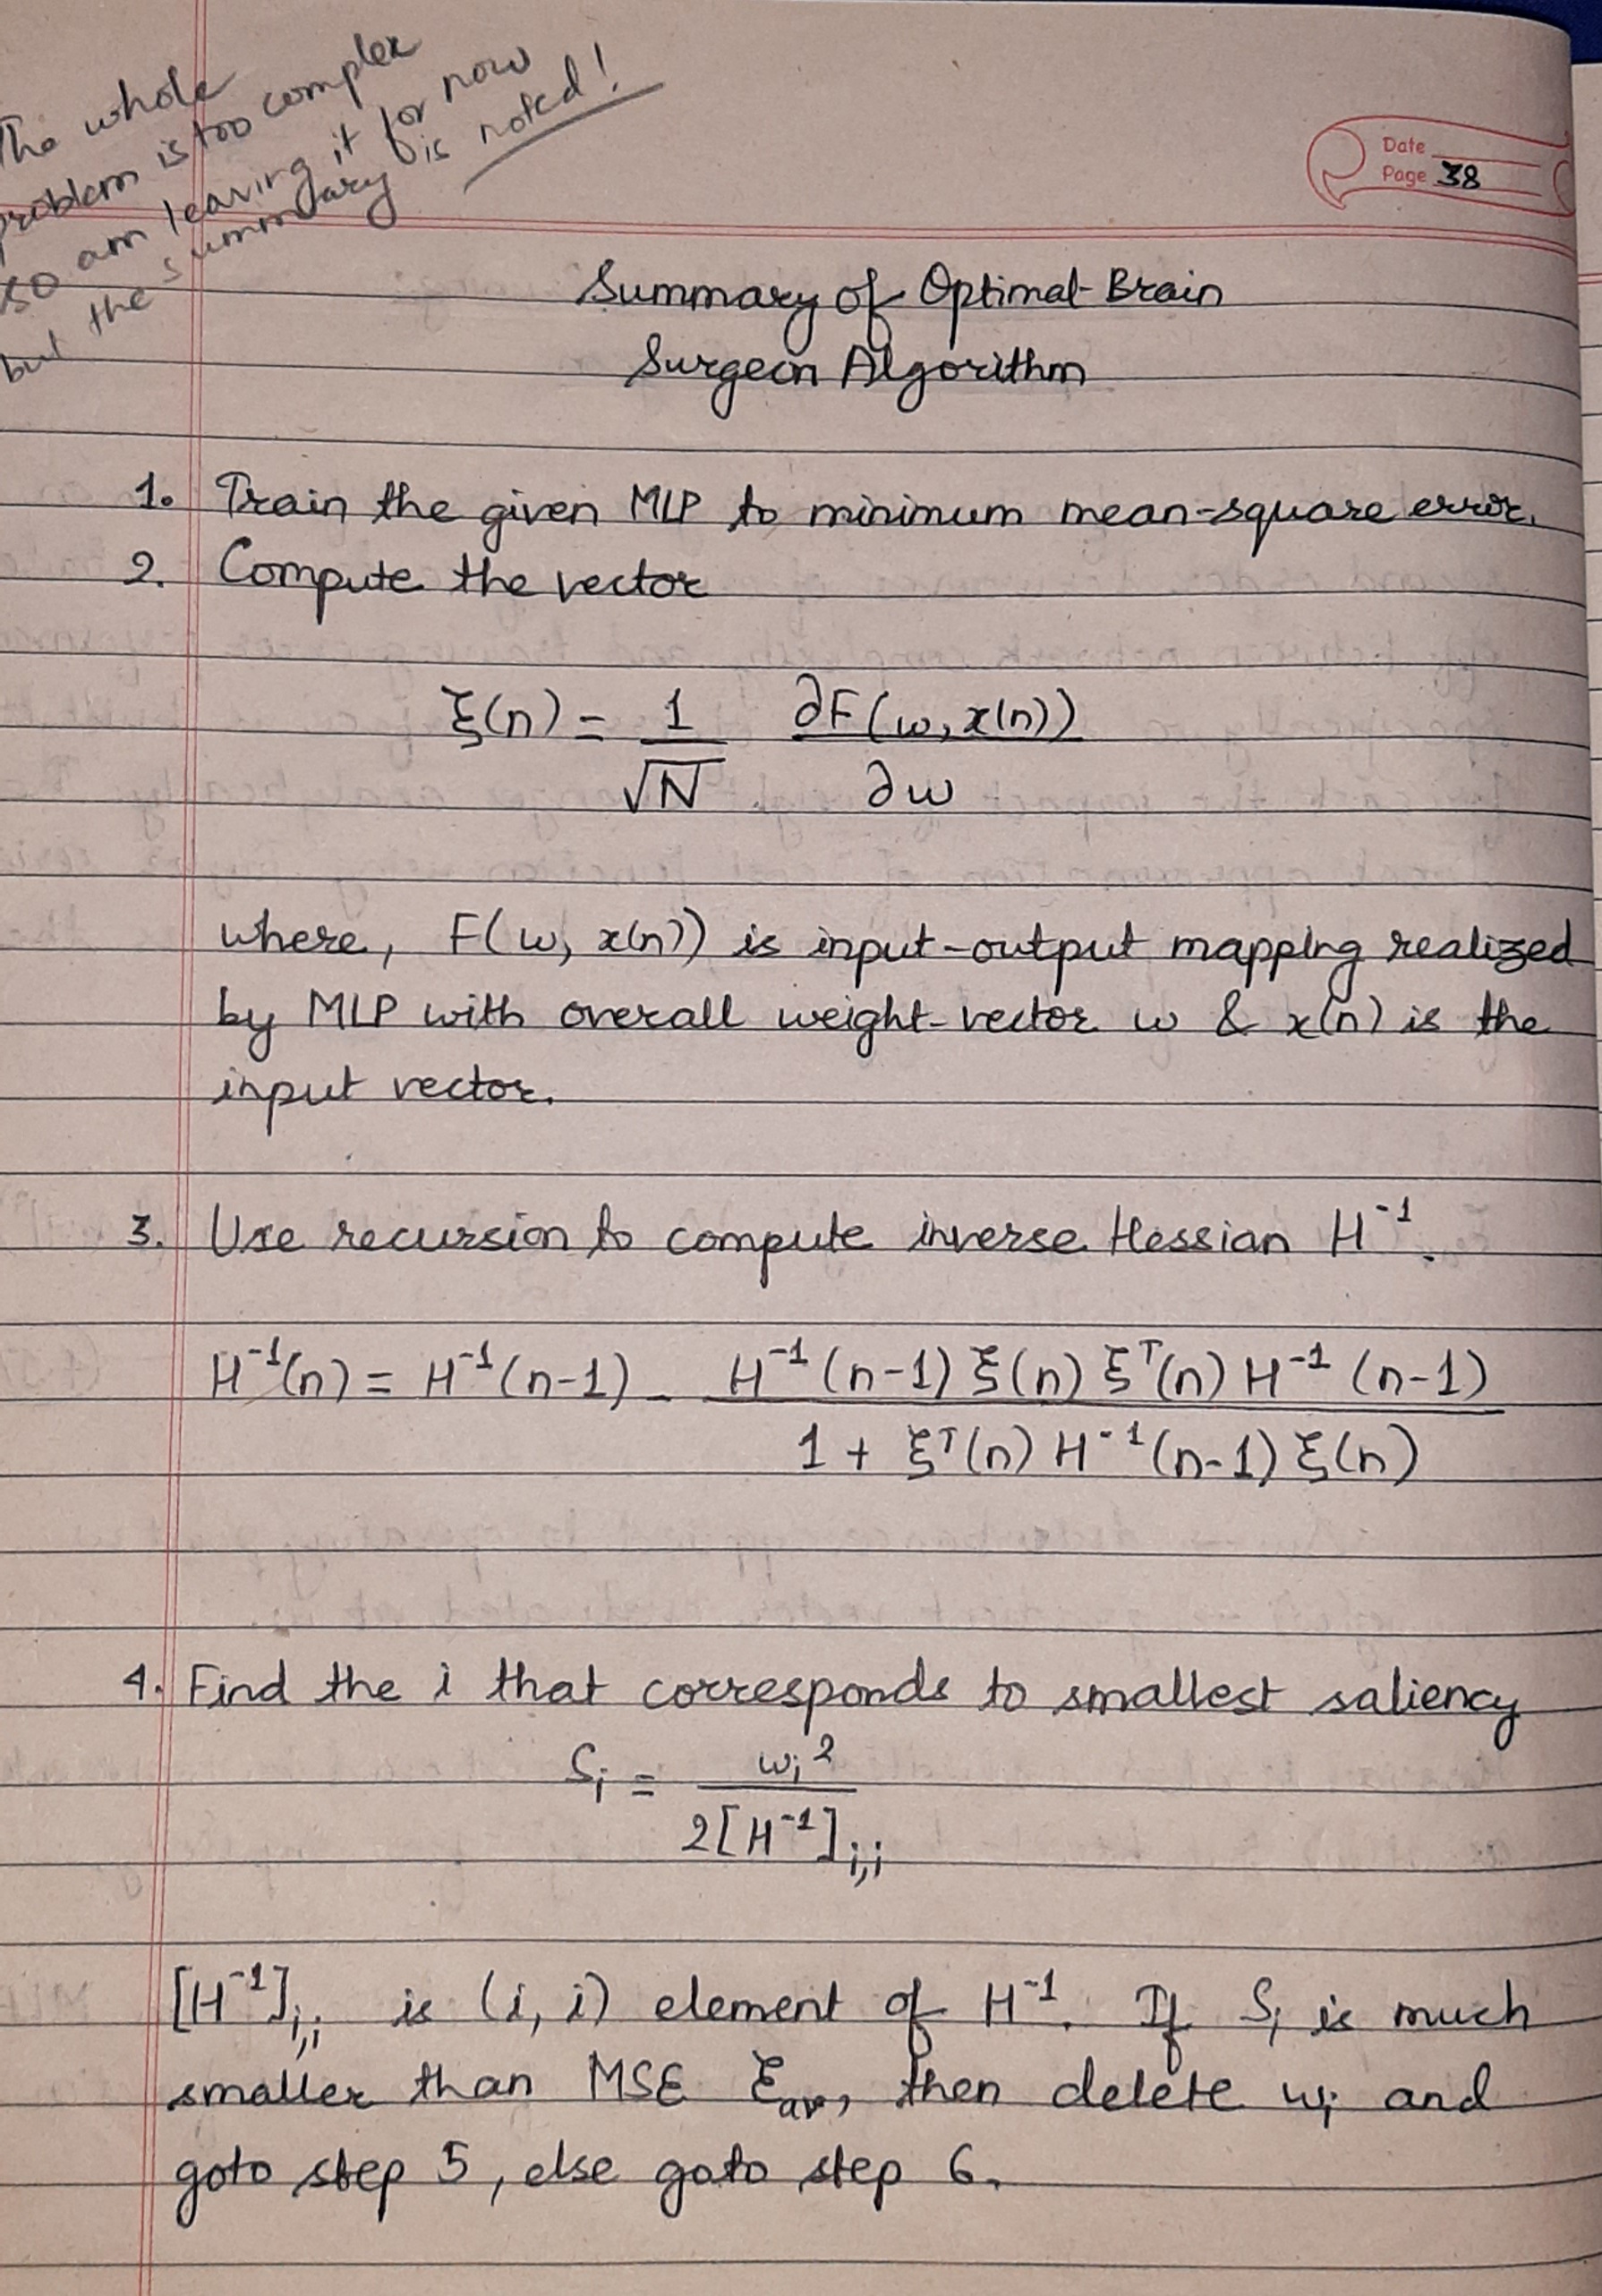 The whole
problem is too complex
so am leaving it for now
but the summary is noted!
Date
Page 38
Summary of Optimal Brain
Surgeon Algorithm
1. Train the given MLP to minimum mean-square error.
2. Compute the vector
ξ(n) = 1/√N ∂F(w, x(n))/∂w
where, F(w, x(n)) is input-output mapping realized
by MLP with overall weight-vector w & x(n) is the
input vector.
3. Use recursion to compute inverse Hessian H⁻¹.
H⁻¹(n) = H⁻¹(n-1) - H⁻¹(n-1) ξ(n) ξᵀ(n) H⁻¹(n-1) / 1 + ξᵀ(n) H⁻¹(n-1) ξ(n)
4. Find the i that corresponds to smallest saliency
Sᵢ = wᵢ² / 2[H⁻¹]ᵢ,ᵢ
[H⁻¹]ᵢ,ᵢ is (i, i) element of H⁻¹. If Sᵢ is much
smaller than MSE ξav, then delete wᵢ and
goto step 5, else goto step 6.